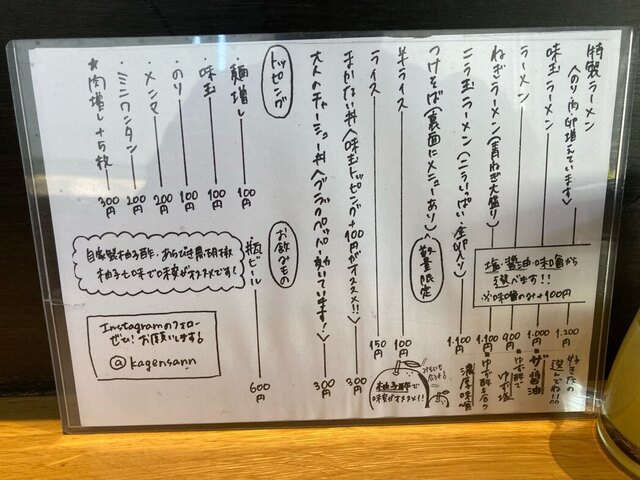 特製ラーメン
(のり、肉、卵増えています)
1.200円
味玉ラーメン
1.000円
ラーメン
900円
ねぎラーメン(青ねぎ大盛り)
1.100円
ニラ玉ラーメン(ニラいっぱい、生卵入り)
1.100円
つけそば(裏面にメニューあり)
数量限定
塩・醤油・味噌から
選べます!!
※味噌のみ+100円
好きなの
選んでね!!
ザ・醤油
ゆず酢で
ゆず塩
ゆず酢も合う
濃厚味噌
半ライス
100円
ライス
150円
まかない丼(味玉トッピング+100円がオススメ!!)
300円
大人のチャーシュー丼(ブラックペッパー効いています!)
300円
柚子酢で
味変がオススメ!!
トッピング
麺増し
100円
・味玉
100円
・のり
100円
・メンマ
200円
・ミニワンタン
200円
★肉増し+5枚
300円
お飲みもの
・瓶ビール
600円
自家製柚子酢・あらびき黒胡椒
柚子七味で味変がオススメです!
Instagramのフォロー
ぜひ!お願いします!
@kagensann